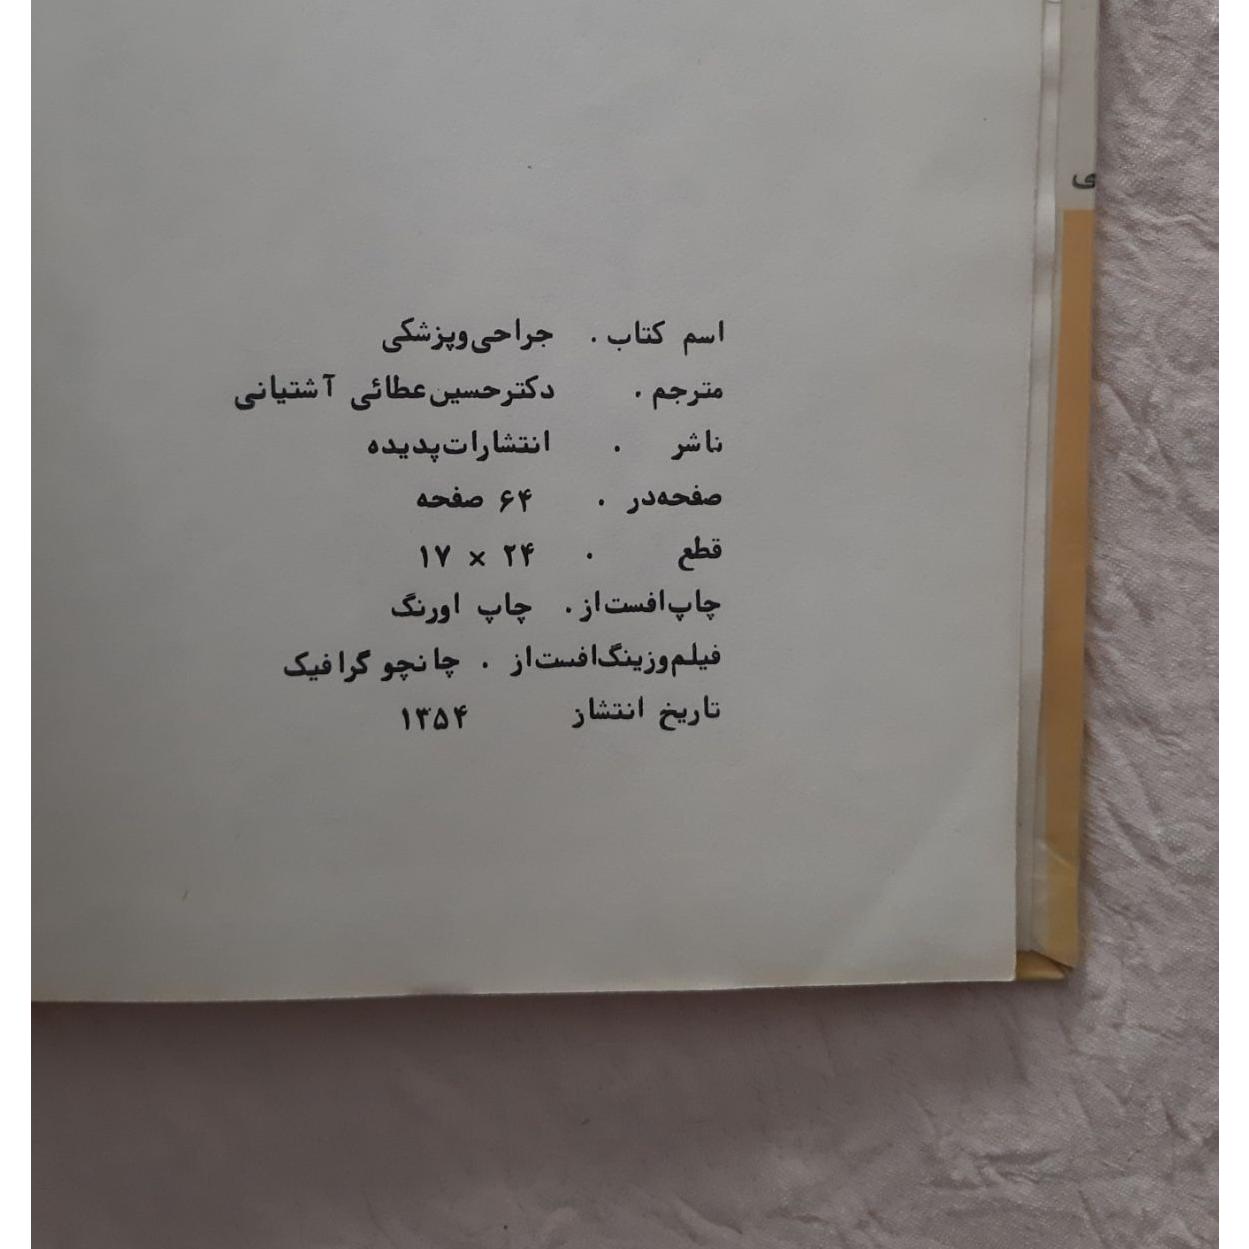 ی
اسم کتاب . جراحی‌وپزشکی
مترجم . دکترحسین‌عطائی آشتیانی
ناشر . انتشارات‌پدیده
صفحه‌در . ۶۴ صفحه
قطع . ۲۴ × ۱۷
چاپ‌افست‌از . چاپ اورنگ
فیلم‌وزینگ‌افست‌از . چانچو گرافیک
تاریخ انتشاز ۱۳۵۴